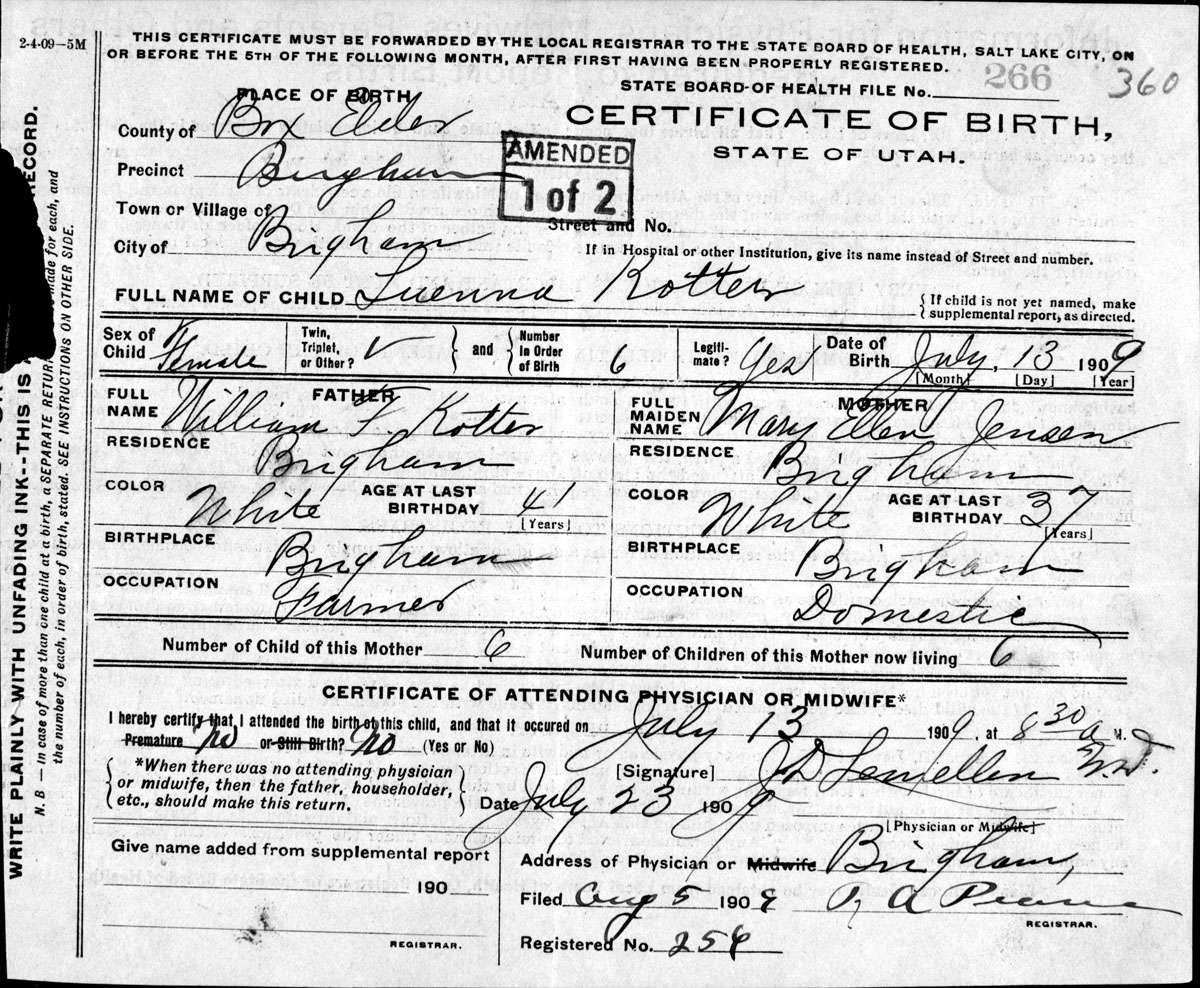 2-4-09—5M
THIS CERTIFICATE MUST BE FORWARDED BY THE LOCAL REGISTRAR TO THE STATE BOARD OF HEALTH, SALT LAKE CITY, ON
OR BEFORE THE 5TH OF THE FOLLOWING MONTH, AFTER FIRST HAVING BEEN PROPERLY REGISTERED.
STATE BOARD OF HEALTH FILE No. 266 360
PLACE OF BIRTH
CERTIFICATE OF BIRTH,
STATE OF UTAH.
County of Box Elder
AMENDED
1 of 2
Precinct Brigham
Town or Village of
Street and No.
City of Brigham
If in Hospital or other Institution, give its name instead of Street and number.
FULL NAME OF CHILD Luenna Kotter
{ If child is not yet named, make
supplemental report, as directed.
Sex of Child Female
Twin, Triplet, or Other? and Number in Order of Birth 6
Legiti- mate? Yes
Date of Birth July, 13 1909
[Month] [Day] [Year]
FATHER
FULL NAME William F Kotter
RESIDENCE Brigham
COLOR White AGE AT LAST BIRTHDAY 41
[Years]
BIRTHPLACE Brigham
OCCUPATION Farmer
MOTHER
FULL MAIDEN NAME Mary Ellen Jensen
RESIDENCE Brigham
COLOR White AGE AT LAST BIRTHDAY 37
[Years]
BIRTHPLACE Brigham
OCCUPATION Domestic
Number of Child of this Mother 6 Number of Children of this Mother now living 6
CERTIFICATE OF ATTENDING PHYSICIAN OR MIDWIFE*
I hereby certify that I attended the birth of this child, and that it occured on July 13 1909, at 8 30 a M.
Premature no or Still Birth? no (Yes or No)
{ *When there was no attending physician
or midwife, then the father, householder,
etc., should make this return. }
[Signature] M.D.
Date July 23 1909
[Physician or Midwife]
Give name added from supplemental report
190
REGISTRAR.
Address of Physician or Midwife Brigham,
Filed Aug 5 1909
REGISTRAR.
Registered No. 256
WRITE PLAINLY WITH UNFADING INK--THIS IS RECORD.
N. B — In case of more than one child at a birth, a SEPARATE RETURN made for each, and
the number of each, in order of birth, stated. SEE INSTRUCTIONS ON OTHER SIDE.